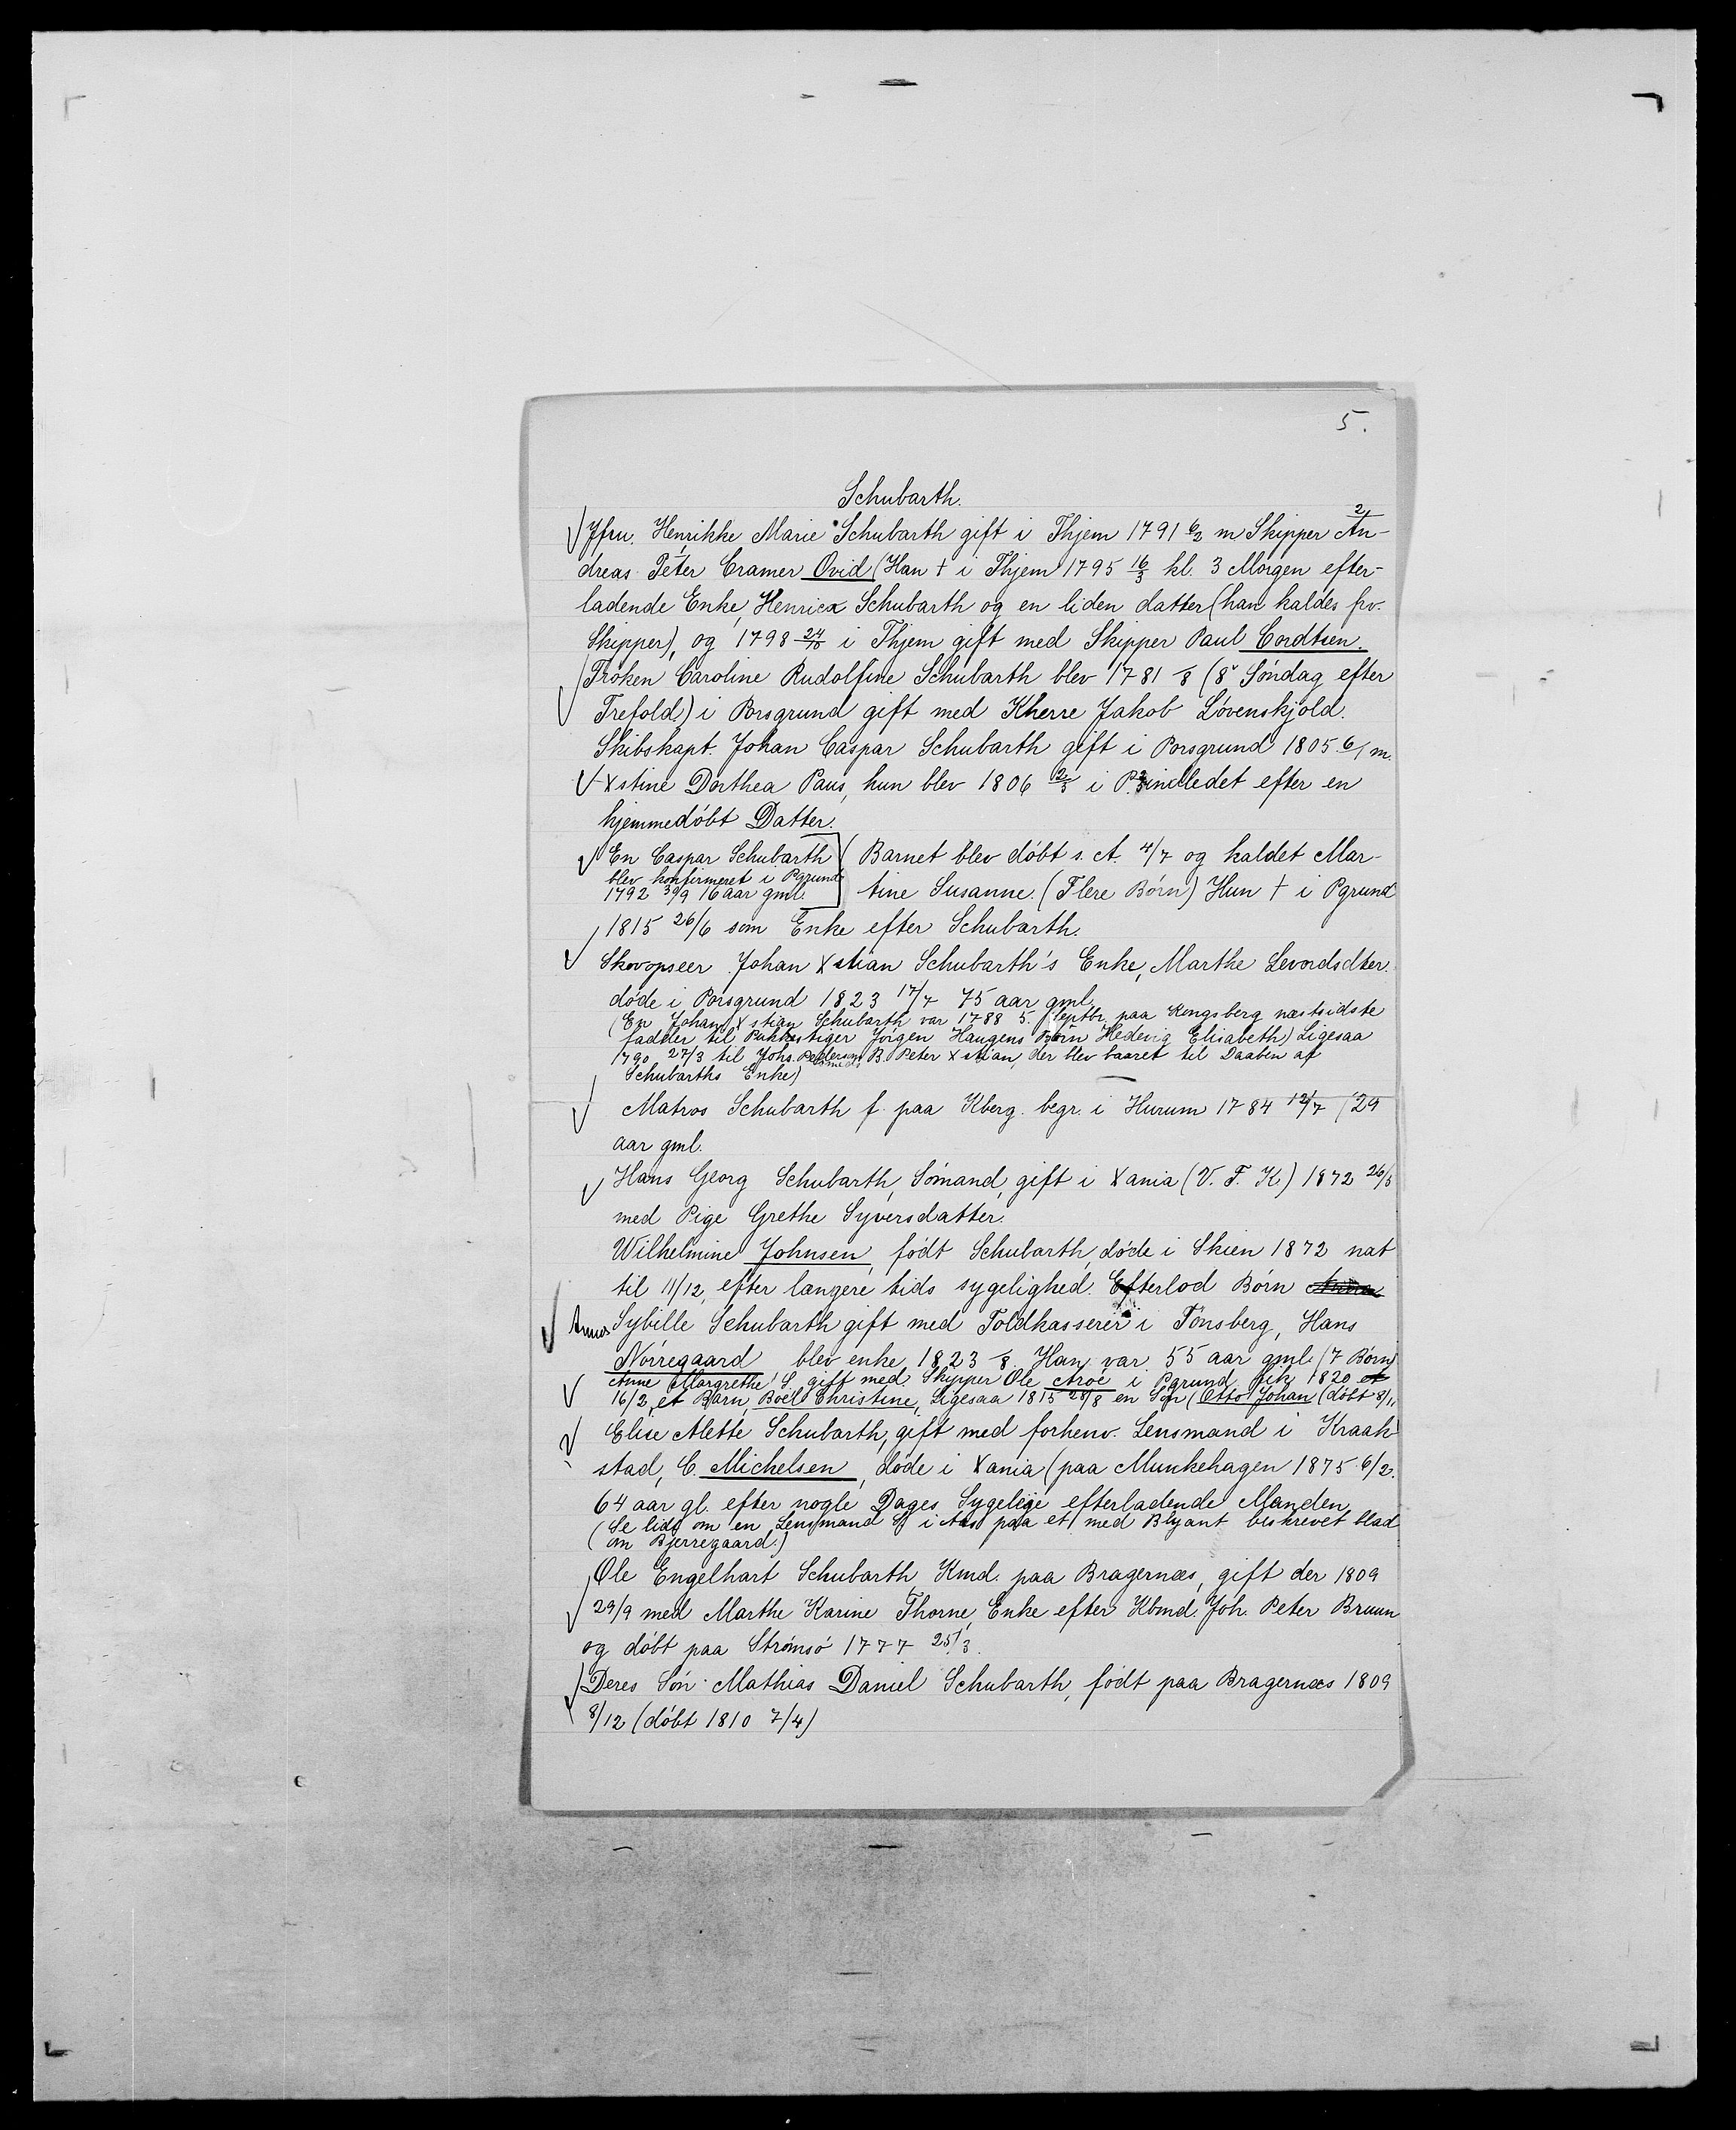 5.
Schubarth.
Jfru. Henrikke Marie Schubarth gift i Thjem 1791 6/2 m Skipper An-
dreas Peter Cramer Ovid (Han † i Thjem 1795 16/3 kl. 3 Morgen efter-
ladende Enke, Henrica Schubarth og en liden datter (han kaldes fv.
Skipper), og 1798 24/10 i Thjem gift med Skipper Paul Cordtsen.
Frøken Caroline Rudolfine Schubarth blev 1781 /8 (8' Søndag efter
Trefold) i Porsgrund gift med Kherre Jakob Løvenskjold.
Skibskapt. Johan Caspar Schubarth gift i Porsgrund 1805 6/1 m.
Xstine Dorthea Paus, hun blev 1806 2/3 i P. indledet efter en
hjemmedøbt Datter.
En Caspar Schubarth
blev konfirmeret i Pgrund
1792 30/9 16 aar gml.
(Barnet blev døbt s. A. 4/7 og kaldet Mar-
tine Susanne. (Flere Børn) Hun † i Pgrund
1815 26/6 som Enke efter Schubarth.
Skovopseer Johan Xstian Schubarth's Enke, Marthe Levordsdter.
døde i Porsgrund 1823 17/7 75 aar gml.
(En Johan Xstian Schubarth var 1788 5 septbr. paa Kongsberg næstsidste
fadder til Pukkstiger Jørgen Haugens Børn Hedevig Elisabeth) Ligesaa
1790 27/3 til Johs. Pedersen B. Peter Xstian, der blev baaret til Daaben af
Schubarths Enke)
Matros Schubarth f. paa Kberg. begr. i Hurum 1784 12/7 (29
aar gml.
Hans Georg Schubarth, Sømand, gift i Xania (V. F. K.) 1872 26/5
med Pige Grethe Syversdatter.
Wilhelmine Johnsen, født Schubarth, døde i Skien 1872 nat
til 11/12, efter længere tids sygelighed. Efterlod Børn
Anna Sybille Schubarth gift med Toldkasserer i Tønsberg, Hans
Nørregaard blev enke 1823 /8. Han var 55 aar gml. (7 Børn)
Anne Margrethe S. gift med Skipper Ole Aroe i Pgrund fik 1820
16/2, et Barn, Boel Christine, Ligesaa 1815 28/8 en Søn (Otto Johan (døbt 8/11
Elise Alette Schubarth, gift med forhenv. Lensmand i Kraak-
stad, C. Michelsen, døde i Xania (paa Munkehagen 1875 6/2.
64 aar gl. efter nogle Dages Sygeleje efterladende Manden
(Se lidt om en Lensmand S i Aas paa et med Blyant beskrevet blad
om Bjerregaard.)
Ole Engelhart Schubarth, Kmd. paa Bragernæs, gift der 1809
29/9 med Marthe Karine Thorne, Enke efter Kbmd. Joh. Peter Bruun
og døbt paa Strømsø 1777 25/3.
Deres Søn Mathias Daniel Schubarth, født paa Bragernæs 1809
8/12 (døbt 1810 7/4)